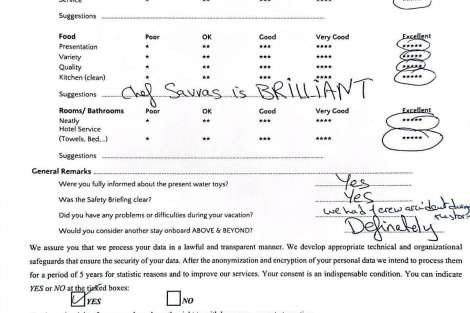 Suggestions
Food Poor OK Good Very Good Excellent
Presentation * ** *** **** *****
Variety * ** *** **** *****
Quality * ** *** **** *****
Kitchen (clean) * ** *** **** *****
Suggestions Chef Savvas is BRILLIANT
Rooms/ Bathrooms Poor OK Good Very Good Excellent
Neatly * ** *** **** *****
Hotel Service
(Towels, Bed...) * ** *** **** *****
Suggestions
General Remarks
Were you fully informed about the present water toys? Yes
Was the Safety Briefing clear? Yes
Did you have any problems or difficulties during your vacation? we had 1 crew accident during
Would you consider another stay onboard ABOVE & BEYOND? Definetely
We assure you that we process your data in a lawful and transparent manner. We develop appropriate technical and organizational
safeguards that ensure the security of your data. After the anonymization and encryption of your personal data we intend to process them
for a period of 5 years for statistic reasons and to improve our services. Your consent is an indispensable condition. You can indicate
YES or NO at the ticked boxes:
YES NO